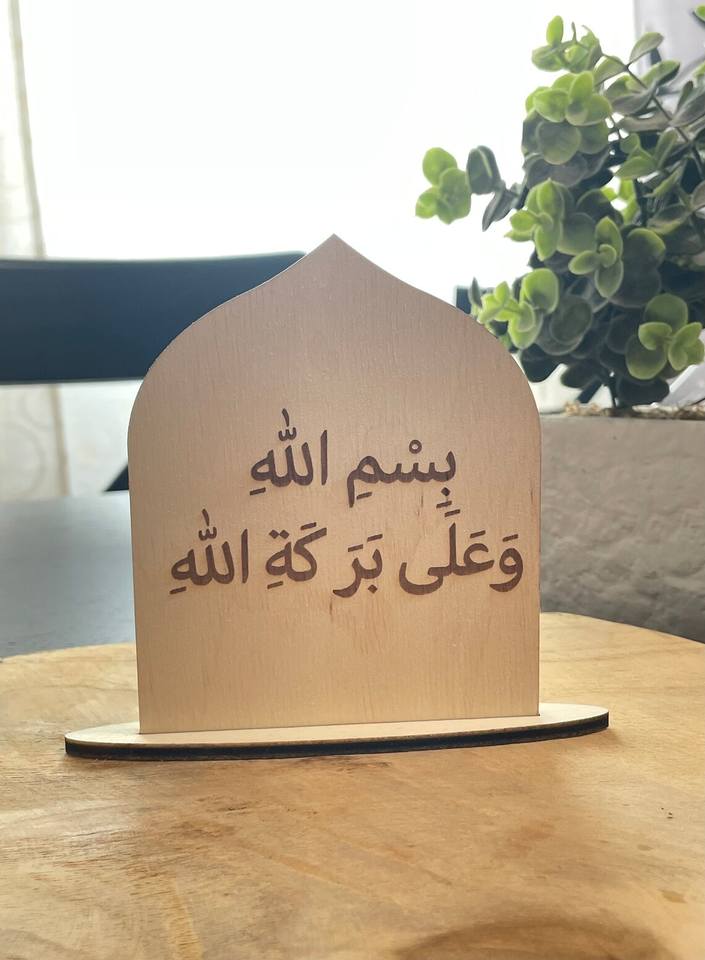 بِسْمِ اللّٰهِ
وَعَلَى بَرَ كَةِ اللّٰهِ